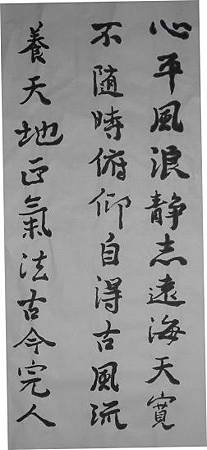 心平風浪靜志遠海天寬
不隨時俯仰自得古風流
養天地正氣法古今完人